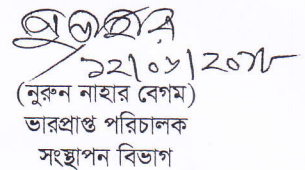 ১২/০৮/২০১৮
(নুরুন নাহার বেগম)
ভারপ্রাপ্ত পরিচালক
সংস্থাপন বিভাগ